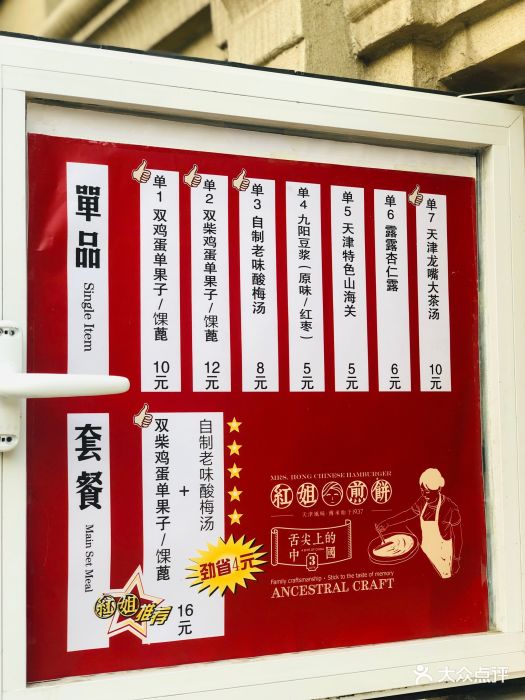 單品
Single Item
单1 双鸡蛋单果子/馃蓖 10元
单2 双柴鸡蛋单果子/馃蓖 12元
单3 自制老味酸梅汤 8元
单4 九阳豆浆(原味/红枣) 5元
单5 天津特色山海关 5元
单6 露露杏仁露 6元
单7 天津龙嘴大茶汤 10元
套餐
Main Set Meal
双柴鸡蛋单果子/馃蓖
+
自制老味酸梅汤
16元
劲省4元
紅姐推荐
MRS. HONG CHINESE HAMBURGER
紅姐煎餅
舌尖上的
中3國
Family craftsmanship · Stick to the taste of memory
ANCESTRAL CRAFT
大众点评